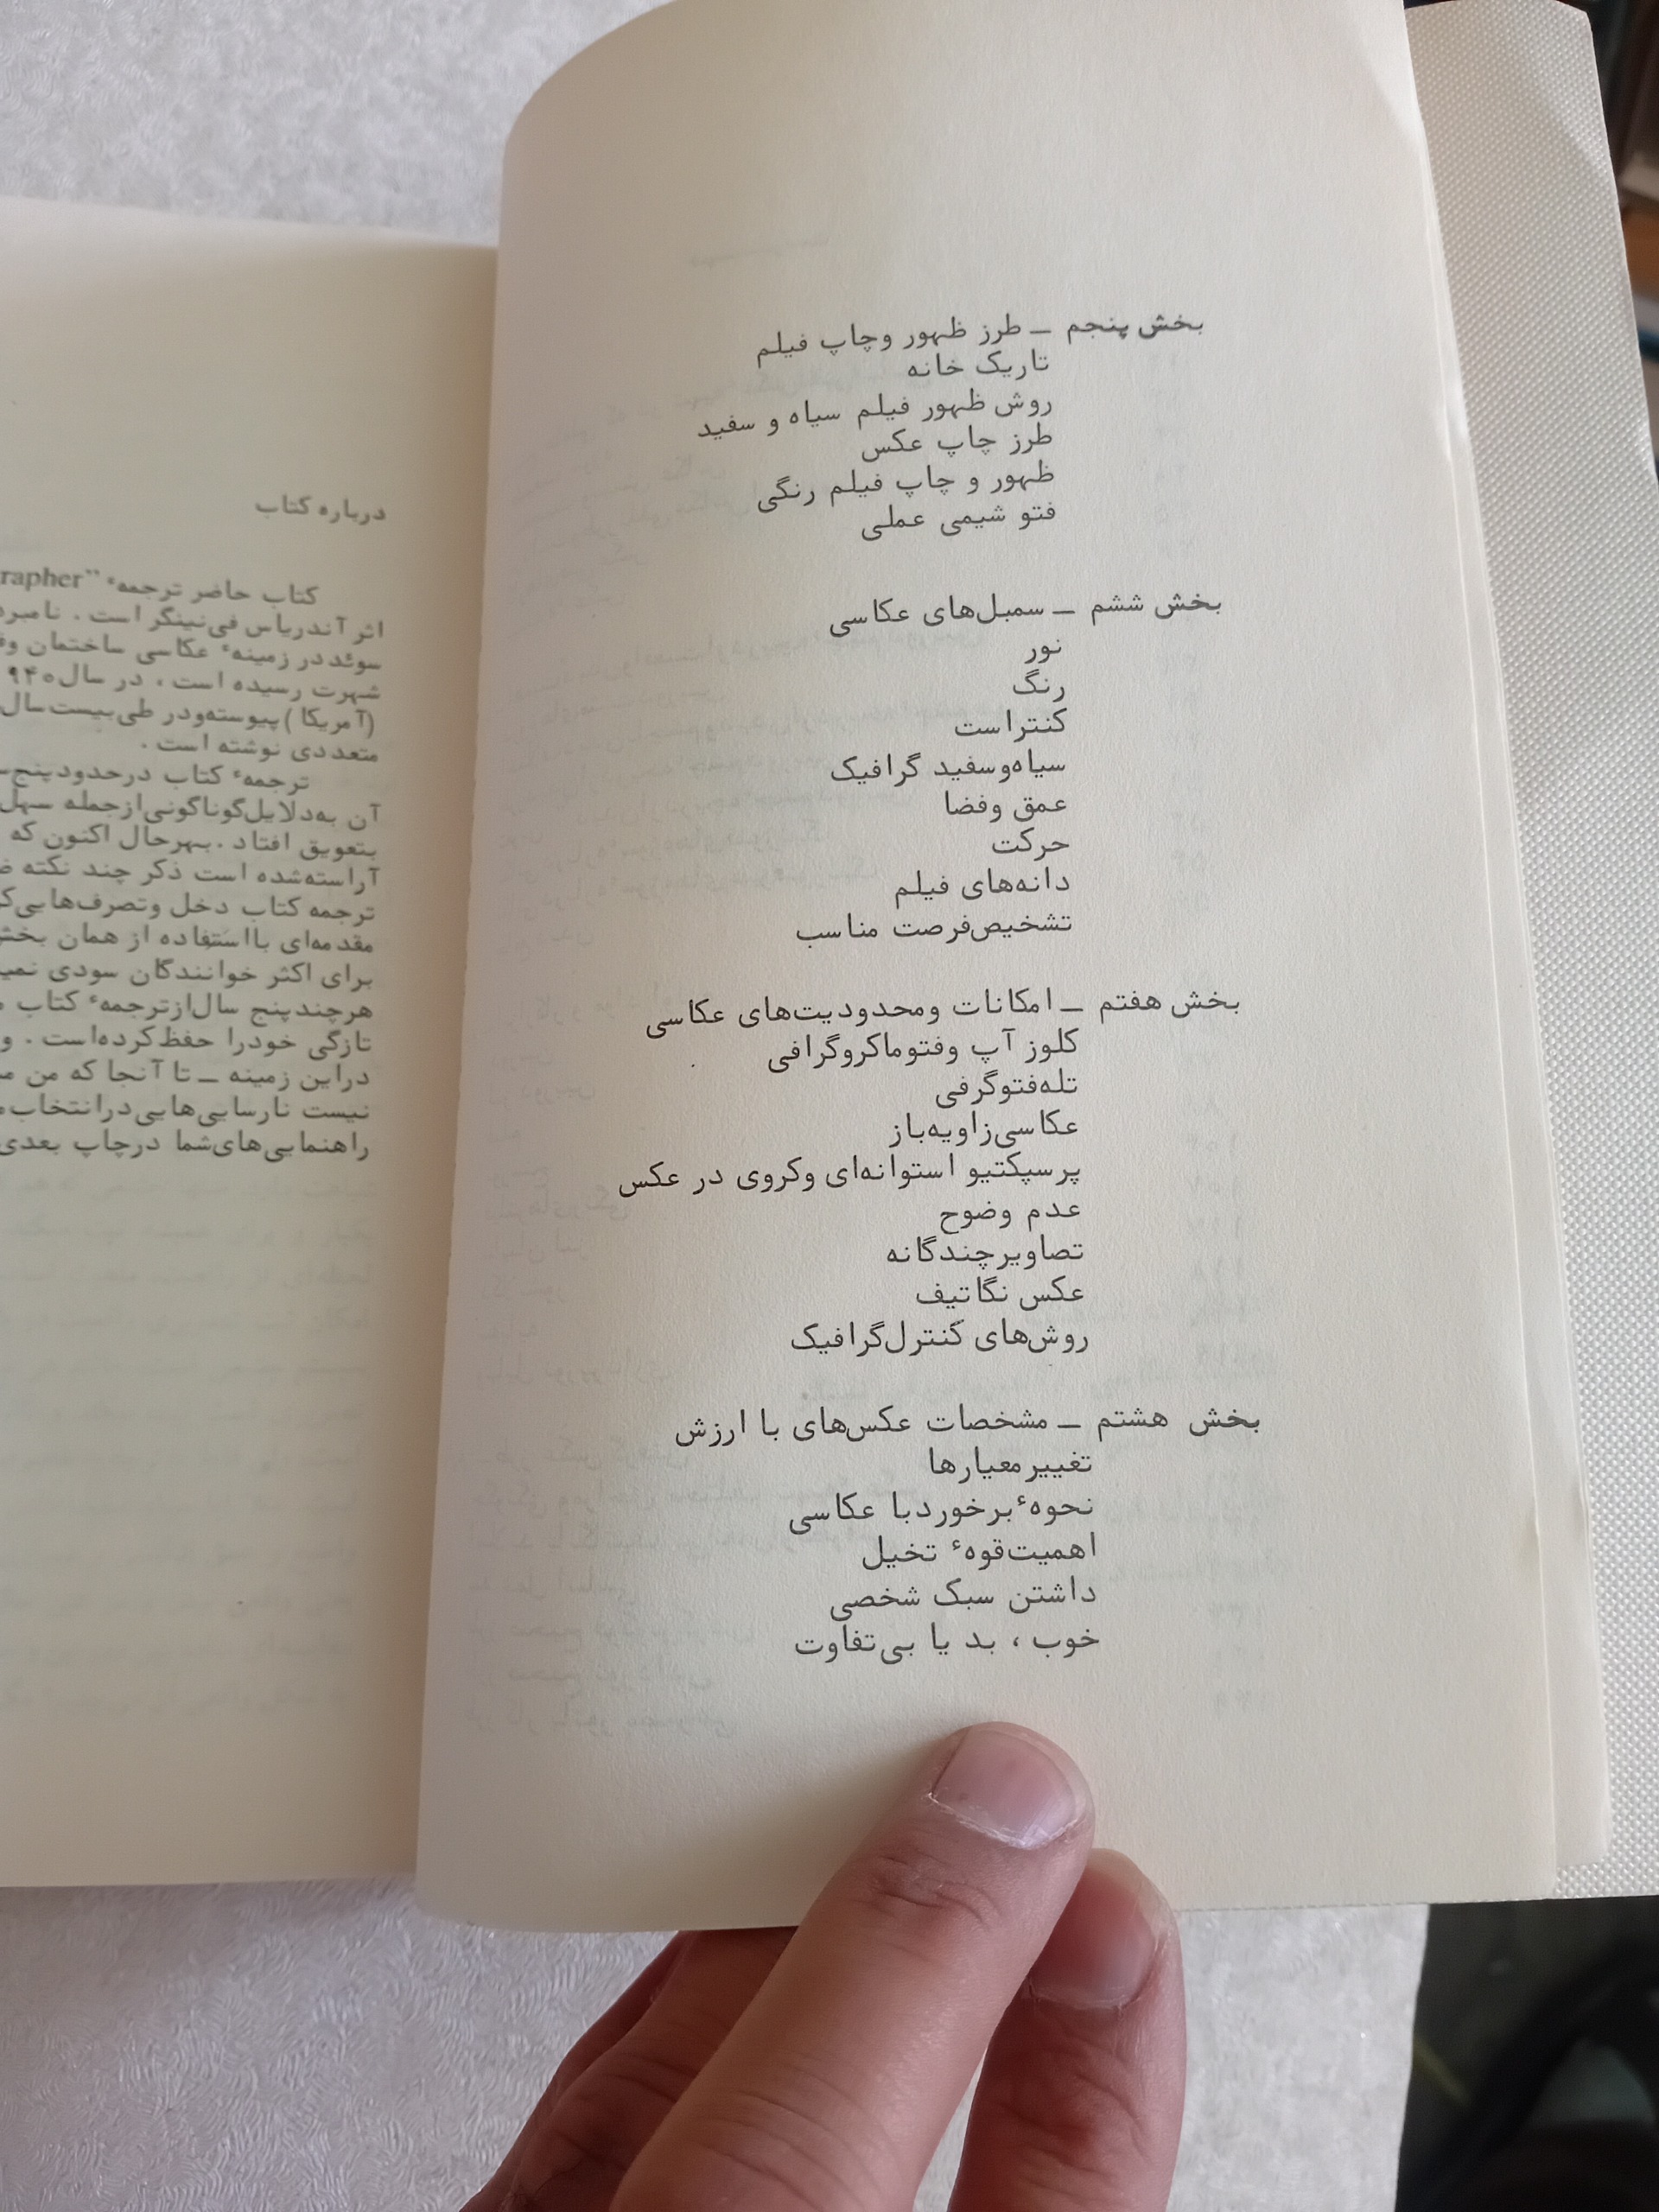 بخش پنجم ــ طرز ظهور وچاپ فیلم
تاریک خانه
روش ظهور فیلم سیاه و سفید
طرز چاپ عکس
ظهور و چاپ فیلم رنگی
فتو شیمی عملی
بخش ششم ــ سمبل‌های عکاسی
نور
رنگ
کنتراست
سیاه‌وسفید گرافیک
عمق وفضا
حرکت
دانه‌های فیلم
تشخیص‌فرصت مناسب
بخش هفتم ــ امکانات ومحدودیت‌های عکاسی
کلوز آپ وفتوماکروگرافی
تله‌فتوگرفی
عکاسی‌زاویه‌باز
پرسپکتیو استوانه‌ای وکروی در عکس
عدم وضوح
تصاویرچندگانه
عکس نگاتیف
روش‌های کنترل‌گرافیک
بخش هشتم ــ مشخصات عکس‌های با ارزش
تغییرمعیارها
نحوهٔ‌برخوردبا عکاسی
اهمیت‌قوهٔ تخیل
داشتن سبک شخصی
خوب ، بد یا بی‌تفاوت
درباره کتاب
کتاب حاضر ترجمهٔ "rapher
اثر آندریاس فی‌نینگر است . نامبرد
سوئددر زمینهٔ عکاسی ساختمان وف
شهرت رسیده است . در سال ۹۴۰
(آمریکا )پیوسته‌ودر طی‌بیست‌سال
متعددی نوشته است .
ترجمهٔ کتاب درحدودپنج‌س
آن به‌دلایل‌گوناگونی‌ازجمله سهل
بتعویق افتاد .بهرحال اکنون که
آراسته‌شده است ذکر چند نکته ض
ترجمه کتاب دخل وتصرف‌هایی‌ک
مقدمه‌ای بااستفاده از همان بخش
برای اکثر خوانندگان سودی نمی
هرچندپنج سال‌ازترجمهٔ کتاب م
تازگی خودرا حفظ‌کرده‌است . و
دراین زمینه ــ تا آنجا که من م
نیست نارسایی‌هایی‌درانتخاب
راهنمایی‌های‌شما درچاپ بعدی